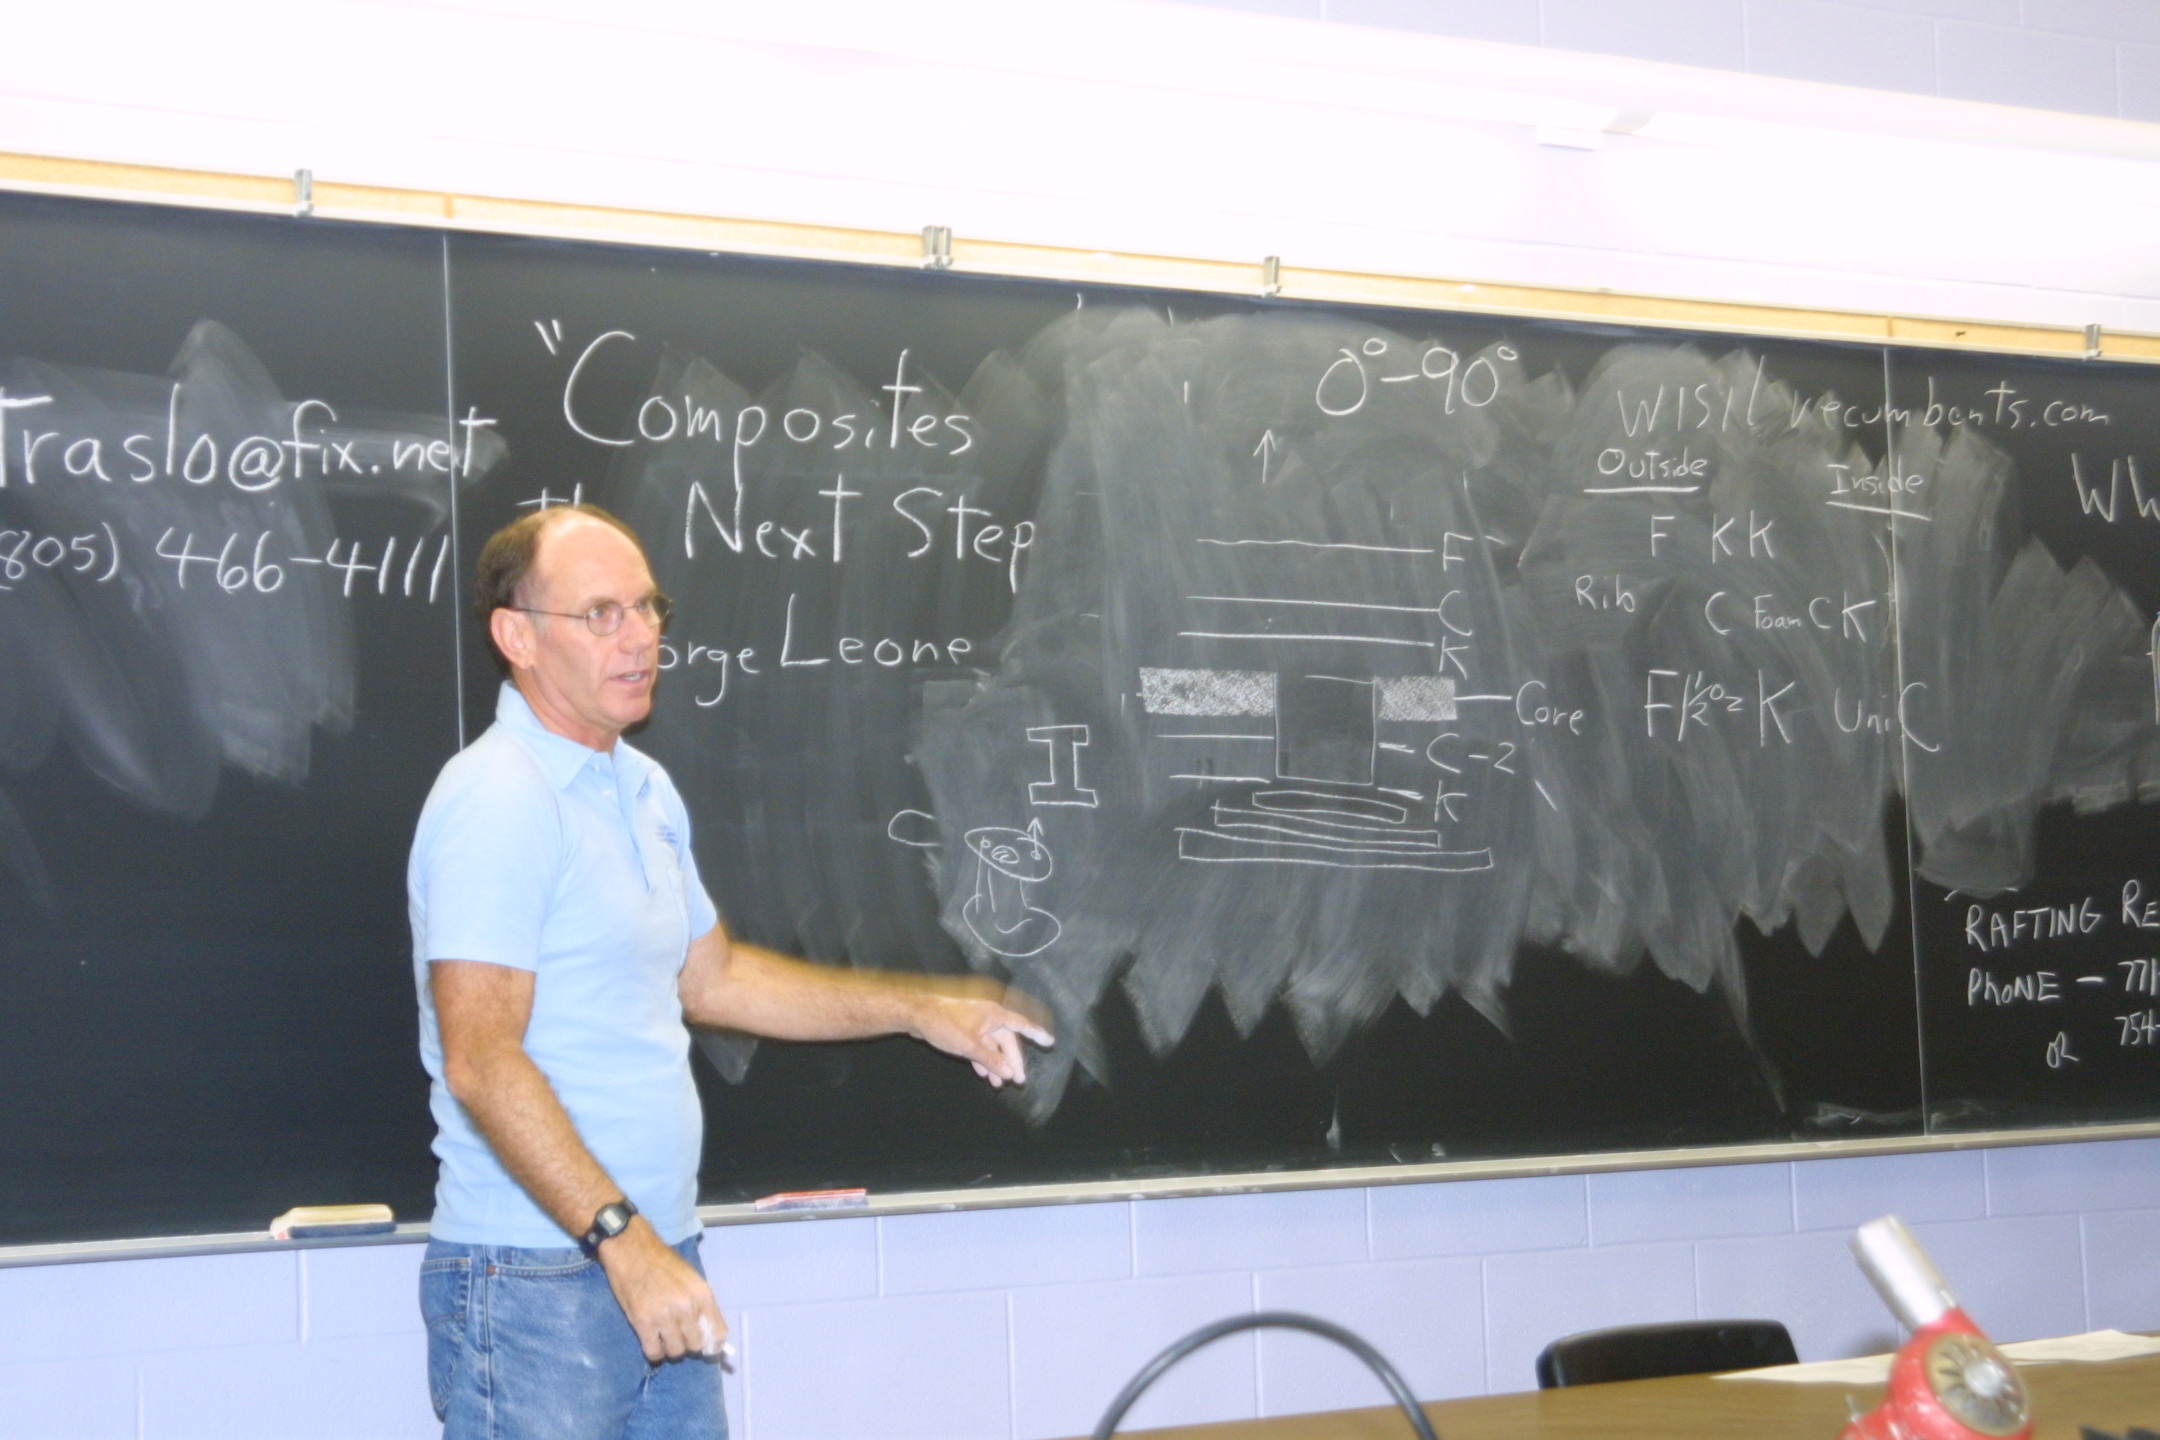 Traslo@fix.net
(805) 466-4111
"Composites
Next Step
orge Leone
C
I
0°-90°
F
C
K
Core
C-2
K
WISIL recumbents.com
Outside Inside
F KK
Rib C Foam C K
F/½oz K Uni C
Wh
RAFTING RE
PhoNE - 771
OR 754-